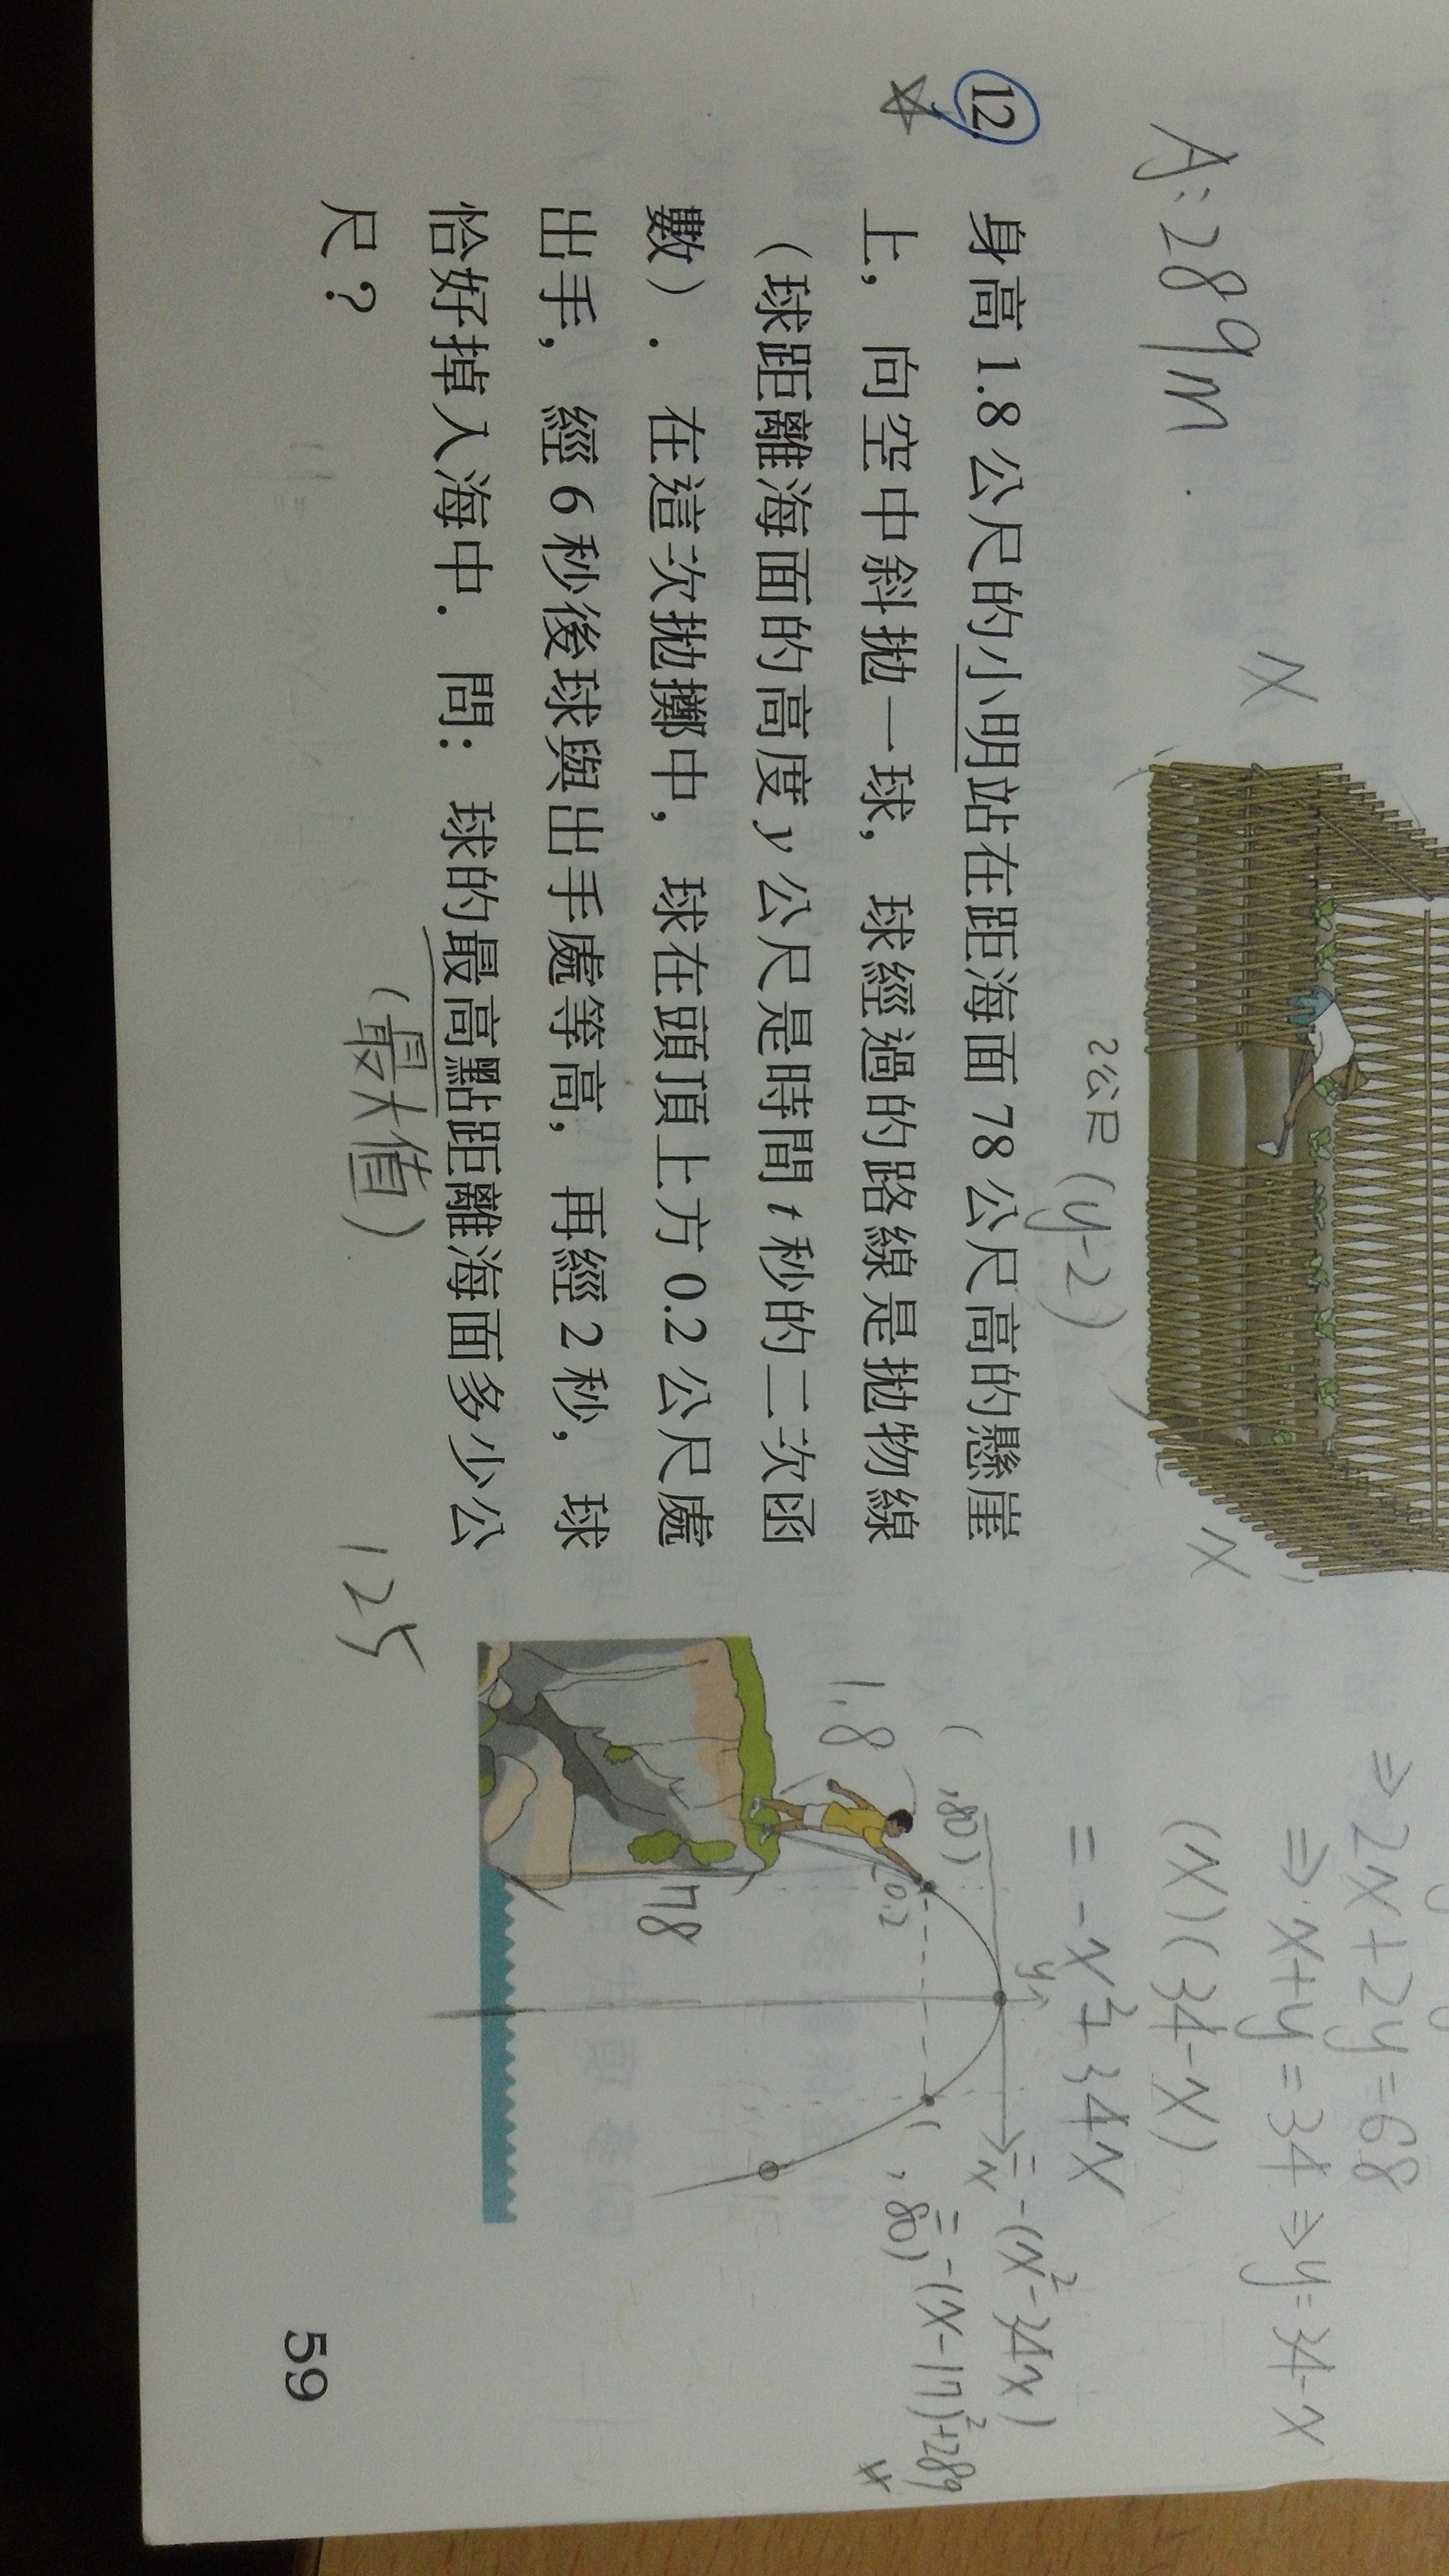 ⇒2x+2y=68
⇒x+y=34⇒y=34-x
(x)(34-x)
=-x²+34x
=-(x²-34x)
=-(x-17)²+289
A:289m
x
2公尺(y-2)
x
12 身高1.8公尺的小明站在距海面78公尺高的懸崖
上，向空中斜拋一球，球經過的路線是拋物線
（球距離海面的高度y公尺是時間t秒的二次函
數）．在這次拋擲中，球在頭頂上方0.2公尺處
出手，經6秒後球與出手處等高，再經2秒，球
恰好掉入海中．問：球的最高點距離海面多少公
尺？
(最大值)
125
1.8
( ,80)
0.2
78
y
x
( ,80)
59